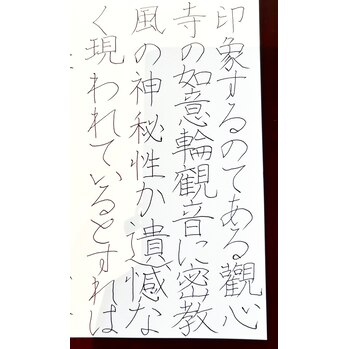 印象するのてある觀心
寺の如意輪観音に密教
風の神秘性か遺憾な
く現われているとすれは